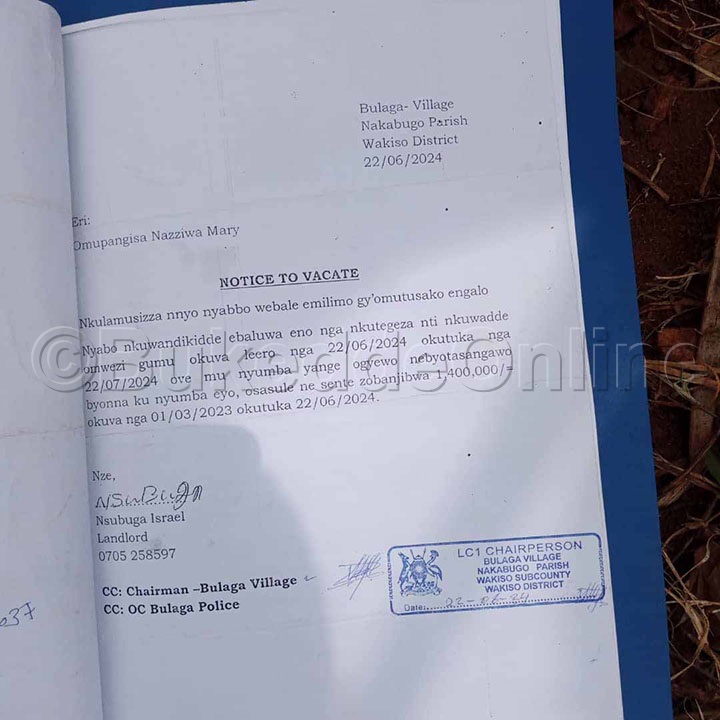 Bulaga- Village
Nakabugo Parish
Wakiso District
22/06/2024
Eri:
Omupangisa Nazziwa Mary
NOTICE TO VACATE
Nkulamusizza nnyo nyabbo webale emilimo gy'omutusako engalo
Nyabo nkuwandikidde ebaluwa eno nga nkutegeza nti nkuwadde
omwezi gumu okuva leero nga 22/06/2024 okutuka nga
22/07/2024 ove mu nyumba yange ogyewo nebyotasangawo
byonna ku nyumba eyo, osasule ne sente zobanjibwa 1,400,000/=
okuva nga 01/03/2023 okutuka 22/06/2024.
©BukeddeOnline
Nze,
Nsubuga
Nsubuga Israel
Landlord
0705 258597
CC: Chairman –Bulaga Village
CC: OC Bulaga Police
LC1 CHAIRPERSON
BULAGA VILLAGE
NAKABUGO PARISH
WAKISO SUBCOUNTY
WAKISO DISTRICT
Date: 22-06-24
037